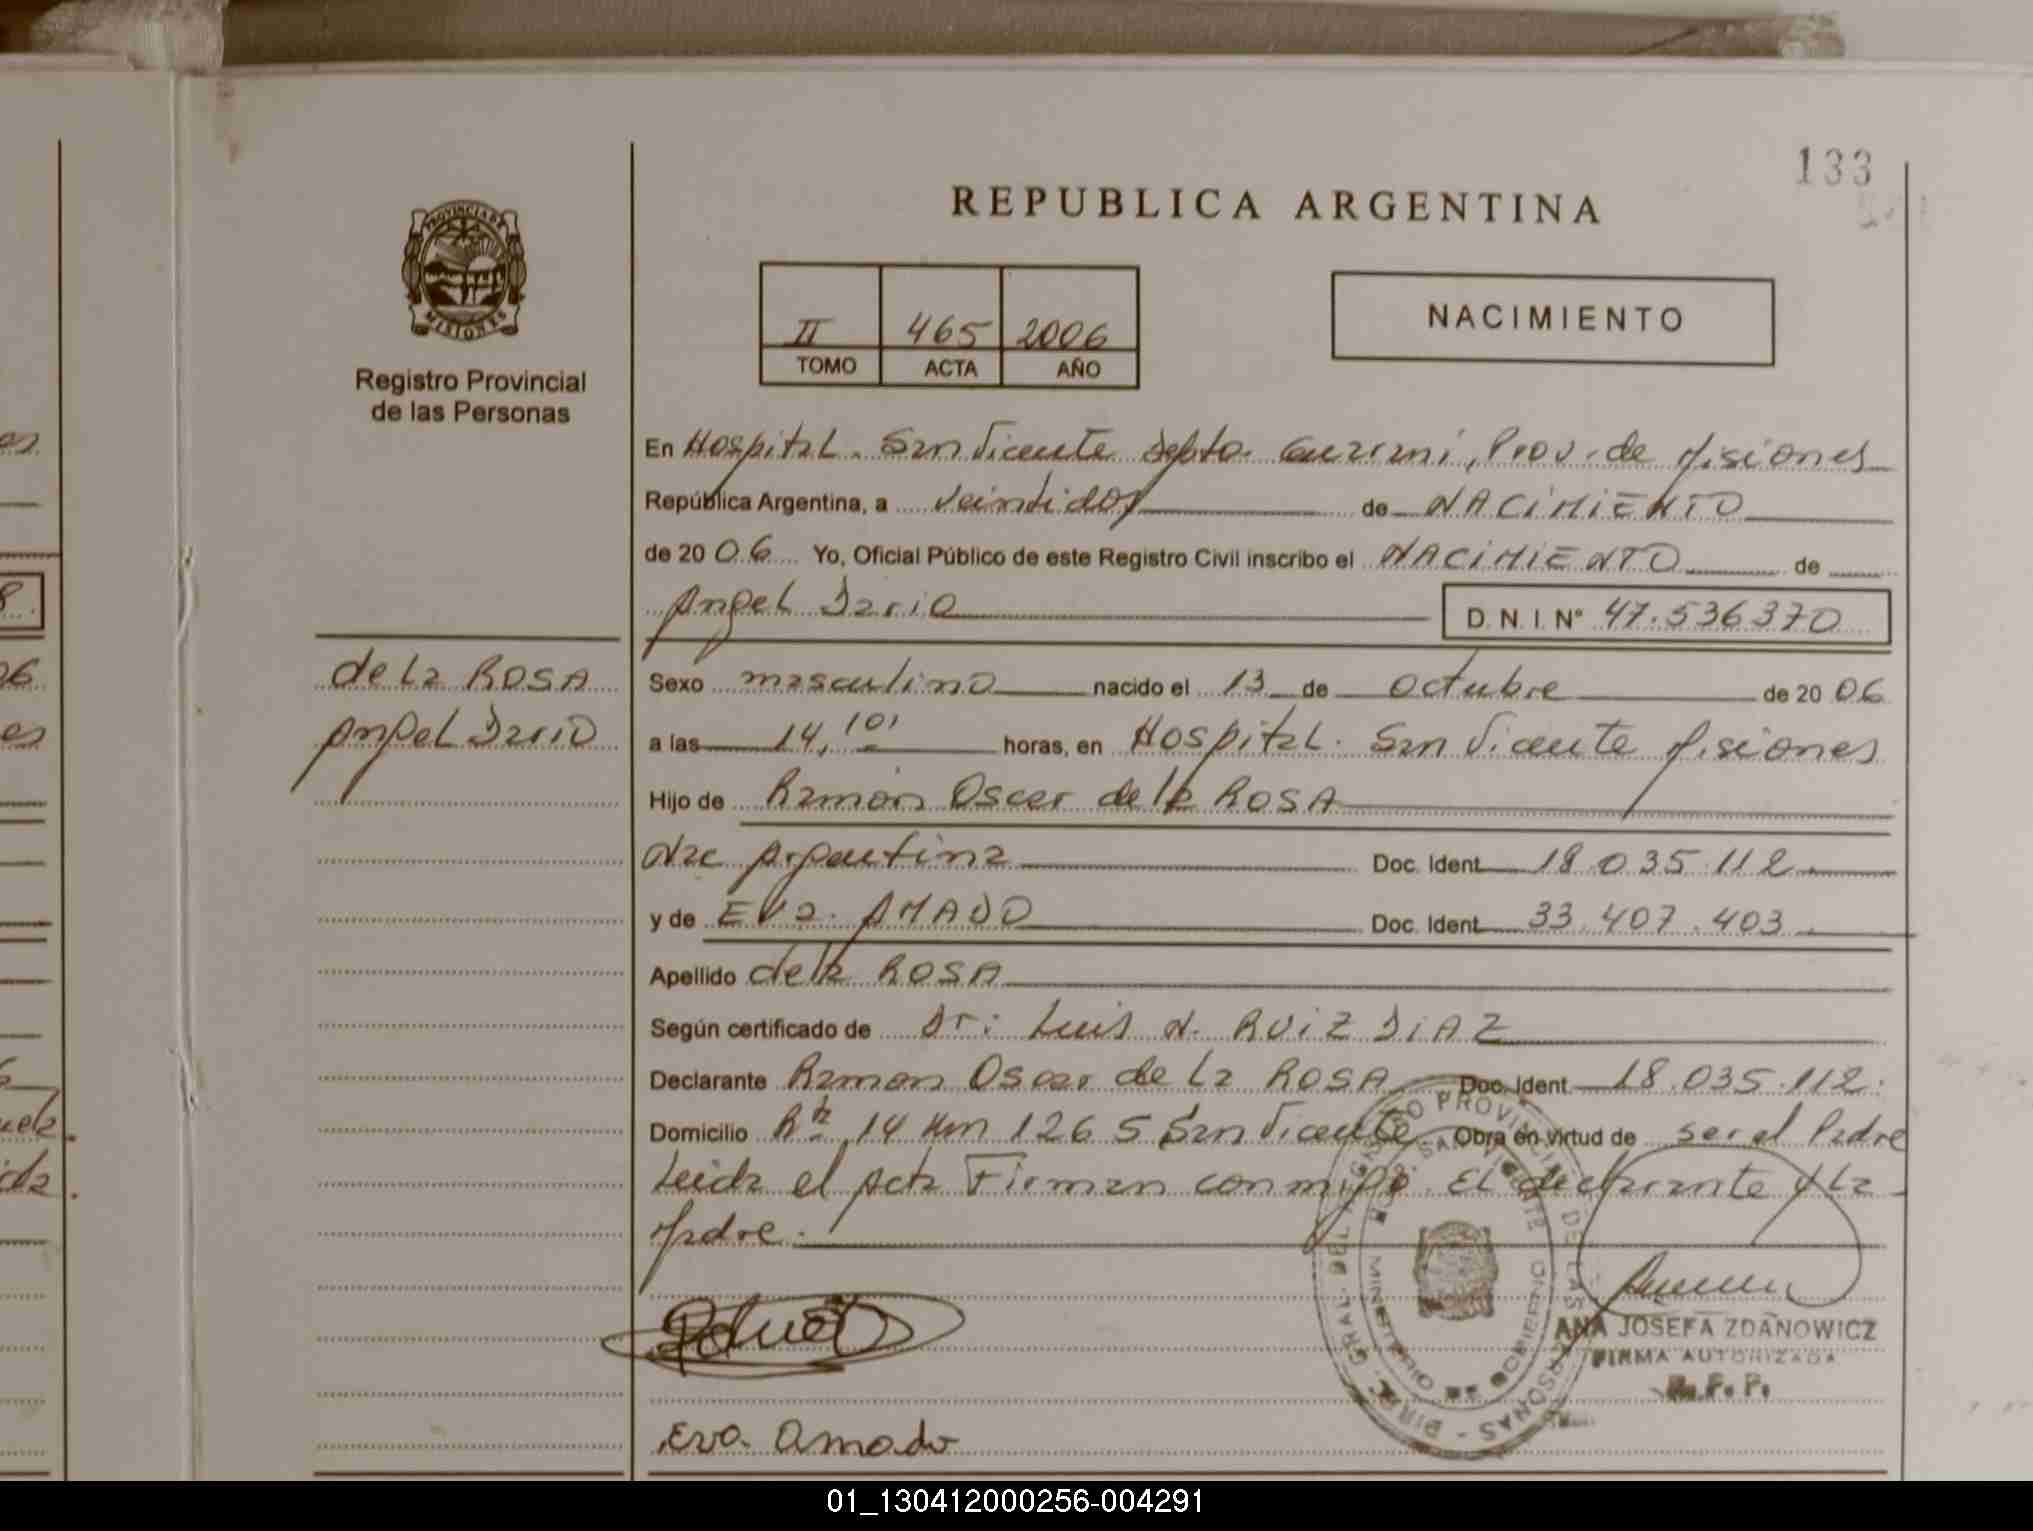 133
REPUBLICA ARGENTINA
PROVINCIA DE
MISIONES
Registro Provincial
de las Personas
II 465 2006
TOMO ACTA AÑO
NACIMIENTO
En Hospital. San Vicente Depto. Guarani, Prov. de Misiones
República Argentina, a veintidos de NACIMIENTO
de 2006 Yo, Oficial Público de este Registro Civil inscribo el NACIMIENTO de
Angel Dario D. N. I. Nº 47.536370
de la ROSA
Angel Dario
Sexo masculino nacido el 13 de octubre de 2006
a las 14,10' horas, en Hospital. San Vicente Misiones
Hijo de Ramón Oscar de la ROSA
Nac Argentina Doc. Ident. 18.035.112
y de Eva. AMADO Doc. Ident. 33.407.403
Apellido de la ROSA
Según certificado de Dr: Luis N. RUIZ DIAZ
Declarante Ramon Oscar de la ROSA Doc. Ident. 18.035.112.
Domicilio Rta 14 Km 1265 San Vicente Obra en virtud de ser el Padre
Leida el Acta Firman conmigo. El declarante y La
Madre.
DIR. GRAL. DEL REGISTRO PROVINCIAL DE LAS PERSONAS
SAN VICENTE
MINISTERIO DE GOBIERNO
ANA JOSEFA ZDANOWICZ
FIRMA AUTORIZADA
R. P. P.
Eva. Amado
01_130412000256-004291